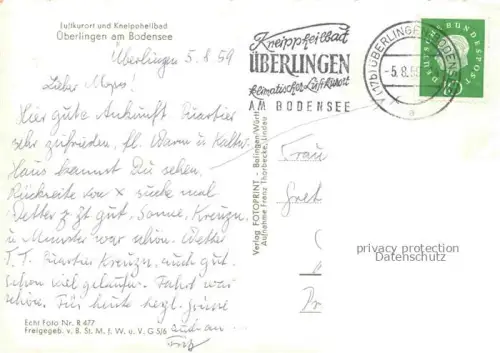 Luftkurort und Kneippheilbad
Überlingen am Bodensee
Überlingen 5.8.59
Lieber
Hier gute Ankunft. Quartier
sehr zufrieden. fl. Warm u. Kaltw.
Haus kannst Du sehen.
Rückseite von x suche mal
Wetter z.Zt gut. Sonne,
u Münster war schön. Wetter
T. T. Quartier auch gut.
schon viel gelaufen. Fahrt war
schön. Für heute herzl. Grüsse
auch an ...
Echt Foto Nr. R 477
Freigegeb. v. B. St. M. f. W. u. V. G 5/6
Verlag FOTOPRINT - Balingen/Württ.
Aufnahme Franz Thorbecke, Lindau
Kneippheilbad
ÜBERLINGEN
klimatischer Luftkurort
AM BODENSEE
(17b) ÜBERLINGEN (BODENSEE)
-5.8.59
a
DEUTSCHE BUNDESPOST
Frau
Gret
privacy protection
Datenschutz